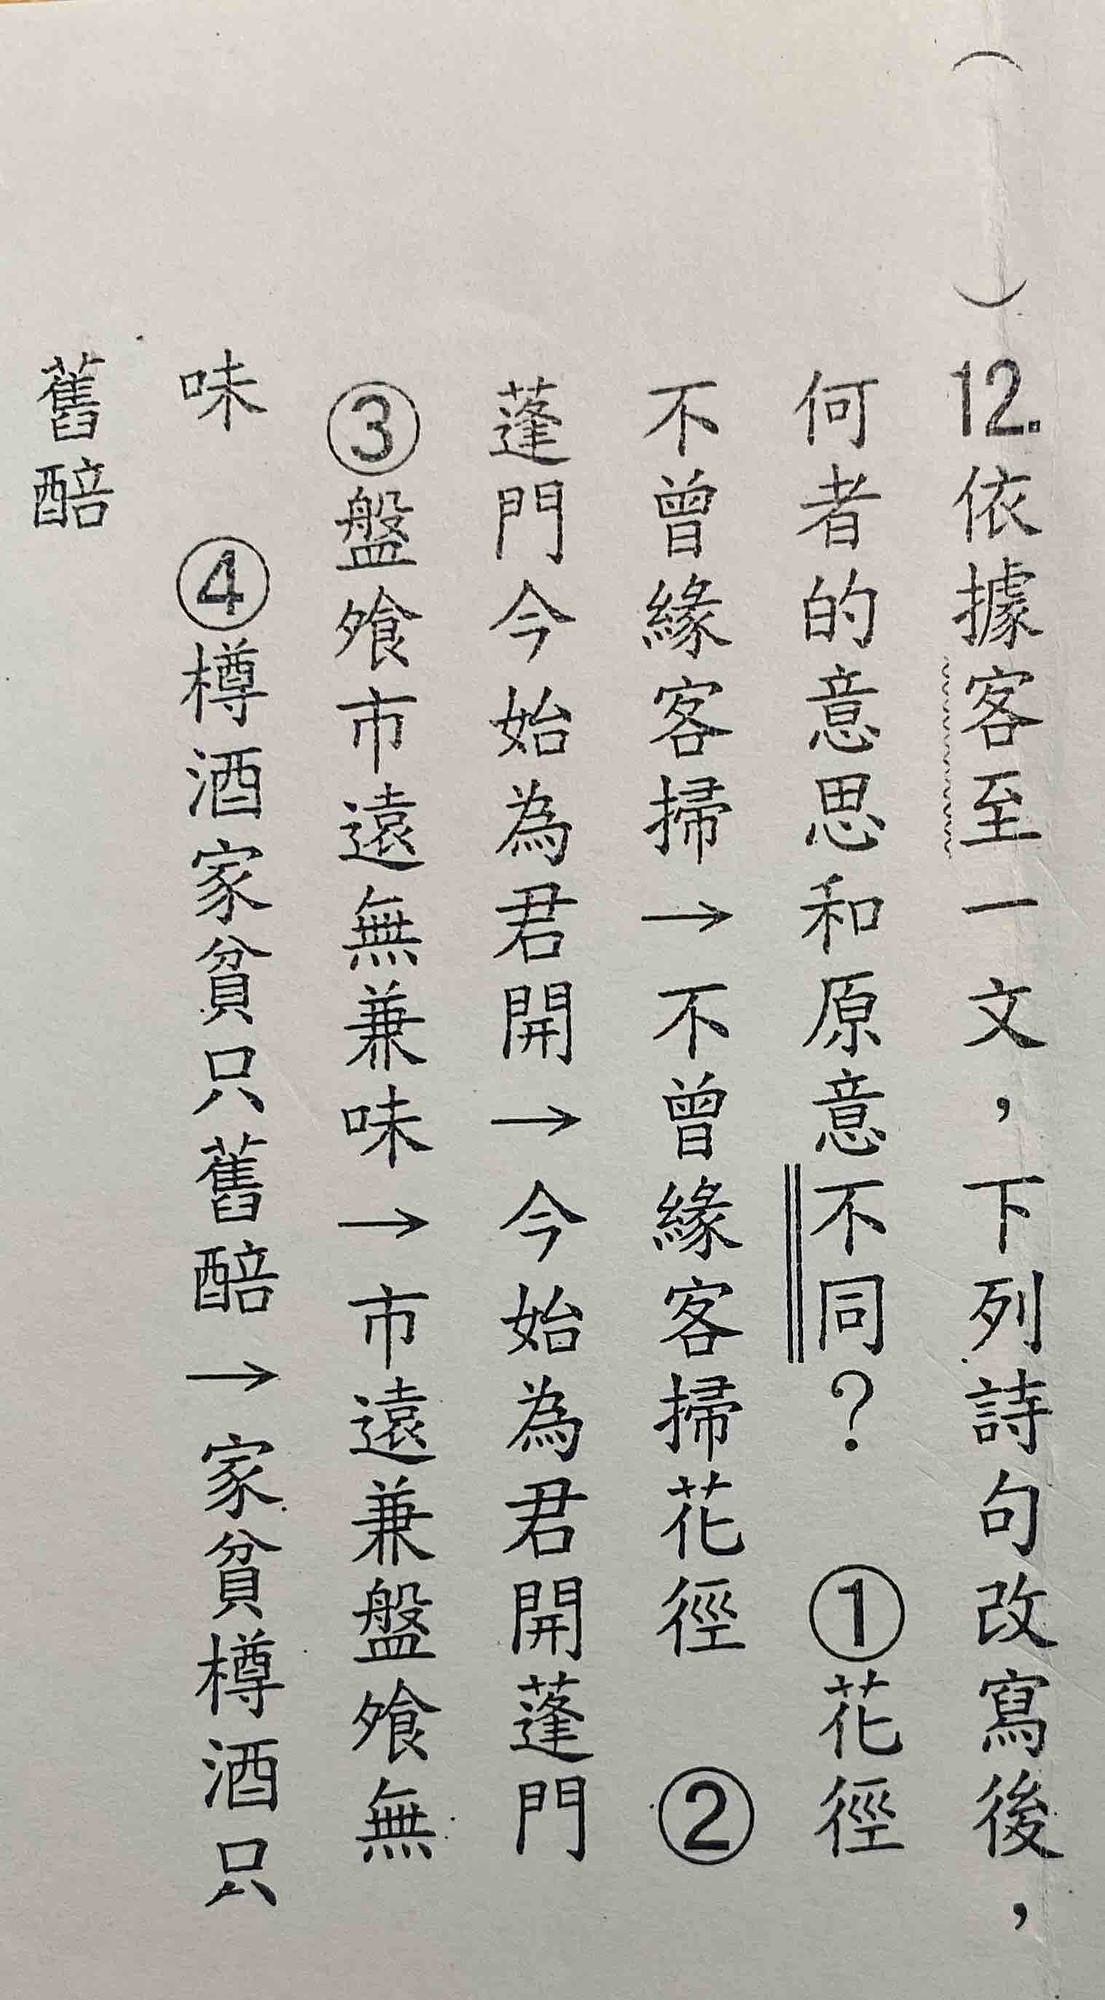 （　）12.依據客至一文，下列詩句改寫後，
何者的意思和原意不同？　①花徑
不曾緣客掃→不曾緣客掃花徑　②
蓬門今始為君開→今始為君開蓬門
③盤飧市遠無兼味→市遠兼盤飧無
味　④樽酒家貧只舊醅→家貧樽酒只
舊醅